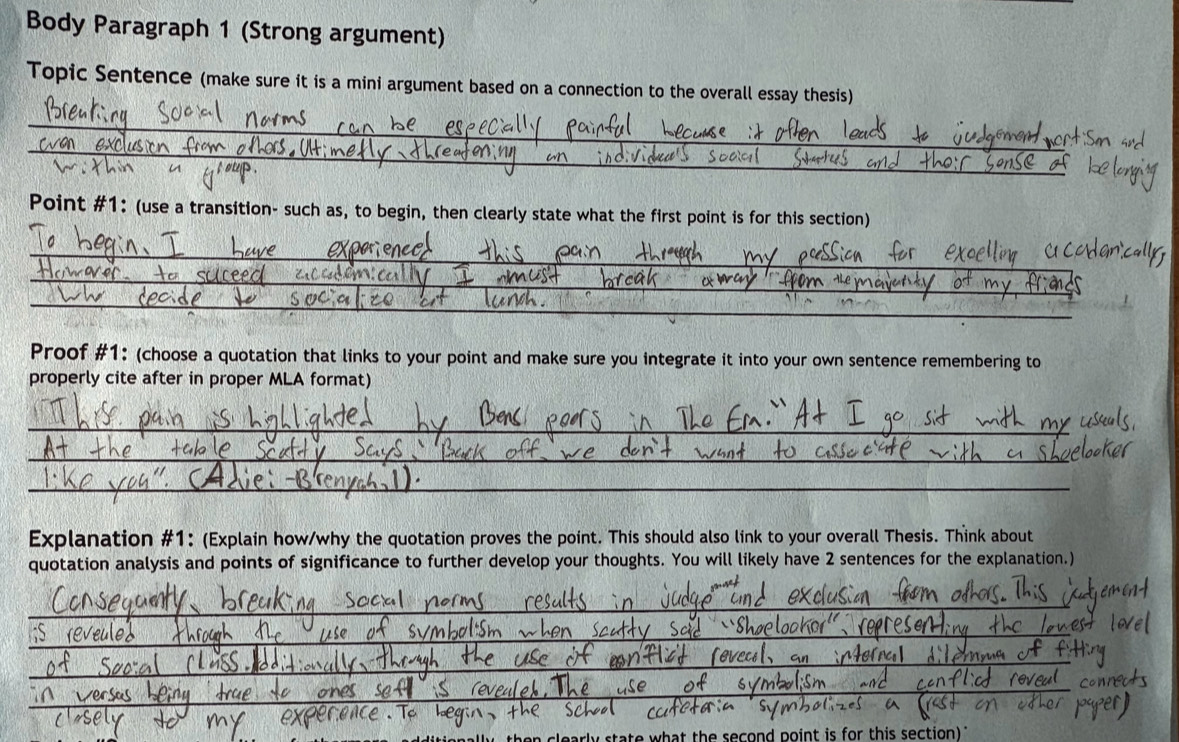 Body Paragraph 1 (Strong argument)
Topic Sentence (make sure it is a mini argument based on a connection to the overall essay thesis)
Breaking social norms can be especially painful because it often leads to judgement and
even exclusion from others. Ultimetly, threatening an individual's social status and their sense of belonging
within a group.
Point #1: (use a transition- such as, to begin, then clearly state what the first point is for this section)
To begin, I have experienced this pain through my passion for excelling academically,
However, to suceed academically I must break away from the majority of my friends
who decide to socialize at lunch.
Proof #1: (choose a quotation that links to your point and make sure you integrate it into your own sentence remembering to
properly cite after in proper MLA format)
This pain is highlighted by Bens peers in The Em. "At I go sit with my usuals.
At the table Scotty says, "Back off, we don't want to associate with a shoelooker
like you". (Adjei-Brenyah, 1).
Explanation #1: (Explain how/why the quotation proves the point. This should also link to your overall Thesis. Think about
quotation analysis and points of significance to further develop your thoughts. You will likely have 2 sentences for the explanation.)
Consequently, breaking social norms results in judgement and exclusion from others. This judgement
is revealed through the use of symbolism when scotty said "shoelooker", representing the lowest level
of social class. Additionally, through the use of conflict reveal, an internal dilemma of fitting
in versus being true to ones self is revealed. The use of symbolism and conflict reveal connects
closely to my experience. To begin, the school cafeteria symbolizes a (rest on other paper)
then clearly state what the second point is for this section)